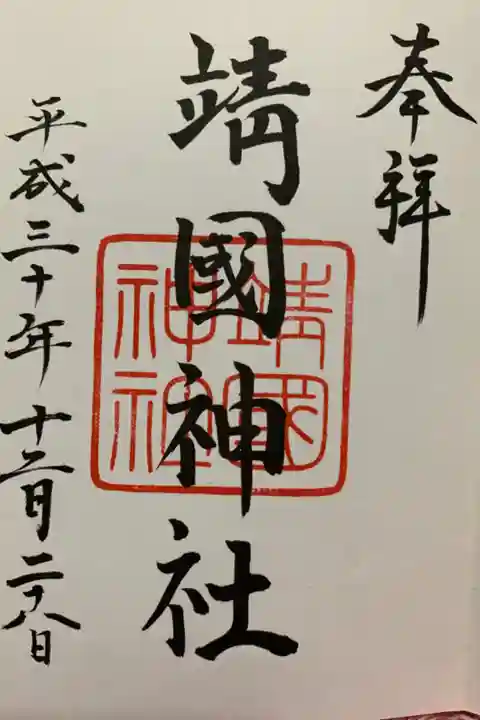 奉拝
靖國神社
靖國神社
平成三十年十二月二十八日